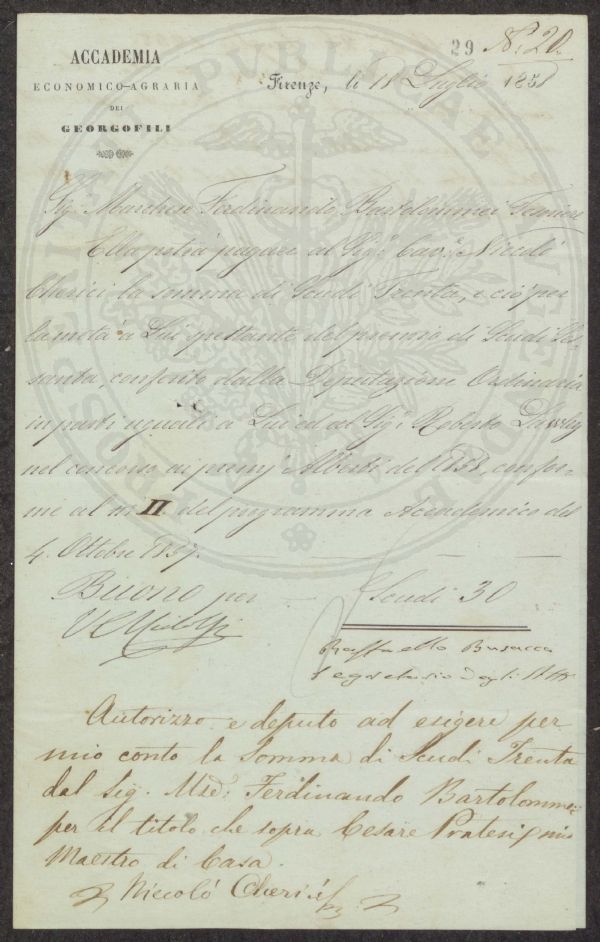 29 N.° 20.
ACCADEMIA
ECONOMICO-AGRARIA
DEI
GEORGOFILI
Firenze, li 18 Luglio 1858
PROSPERITATI PUBLICAE AUGENDAE
Sig. Marchese Ferdinando Bartolommei Tesoriere
Ella potrà pagare al Sig.r Cav.re Niccolò
Cherici la somma di Scudi Trenta, e ciò per
la metà a Lui spettante del premio di Scudi Ses-
santa, conferito dalla Deputazione Ordinaria
in parti uguali a Lui ed al Sig.r Roberto Lawley
nel concorso ai premj Alberti del 1858, confor-
me al n. II del programma Accademico del
4. Ottobre 1857.
Buono per Scudi 30
Raffaello Busacca
Segretario degli Atti
Autorizzo e deputo ad esigere per
mio conto la Somma di Scudi Trenta
dal Sig. Mse. Ferdinando Bartolommei
per il titolo che sopra Cesare Pratesi mio
Maestro di Casa.
Niccolò Cherici